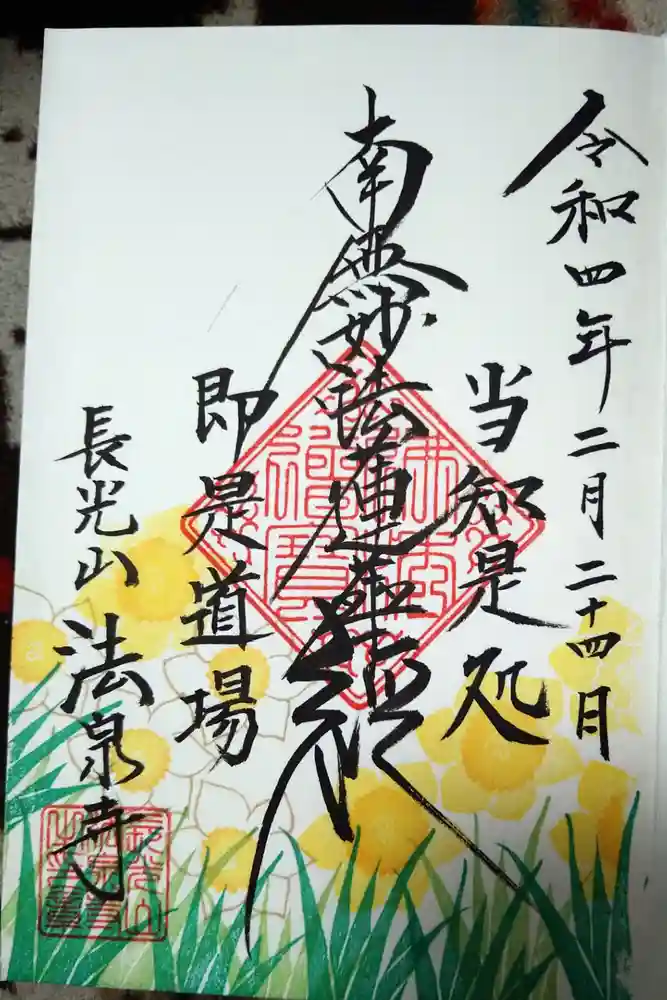 令和四年二月二十四日
当知是処
南無妙法蓮華経
即是道場
長光山
法泉寺